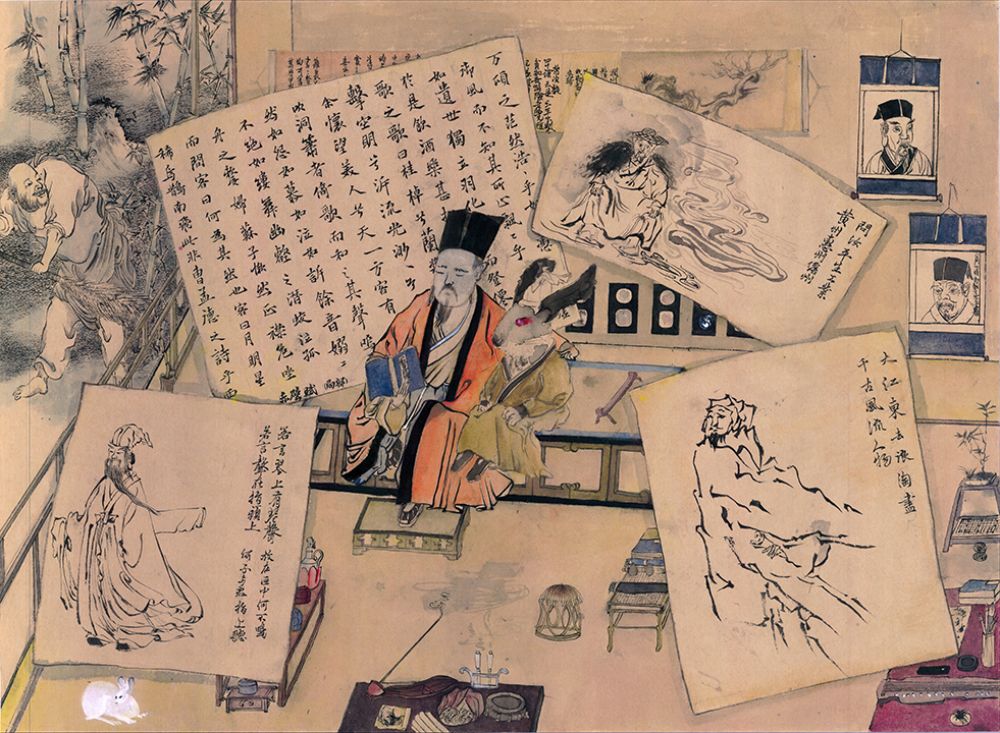 万頃之茫然浩、乎
御風而不知其所止飄、乎
如遺世獨立羽化
於是飲酒樂甚
歌之歌曰桂棹兮蘭槳
擊空明兮泝流光渺、兮
余懷望美人兮天一方客有
吹洞簫者倚歌而和之其聲嗚
然如怨如慕如泣如訴餘音嫋、
不絶如縷舞幽壑之潛蛟泣孤
舟之嫠婦蘇子愀然正襟危坐
而問客曰何為其然也客曰月明星
稀烏鵲南飛此非曹孟德之詩乎西
問汝平生功業
黄州惠州儋州
大江東去浪淘盡
千古風流人物
若言琴上有琴聲
放在匣中何不鳴
若言聲在指頭上
何不於君指上聽